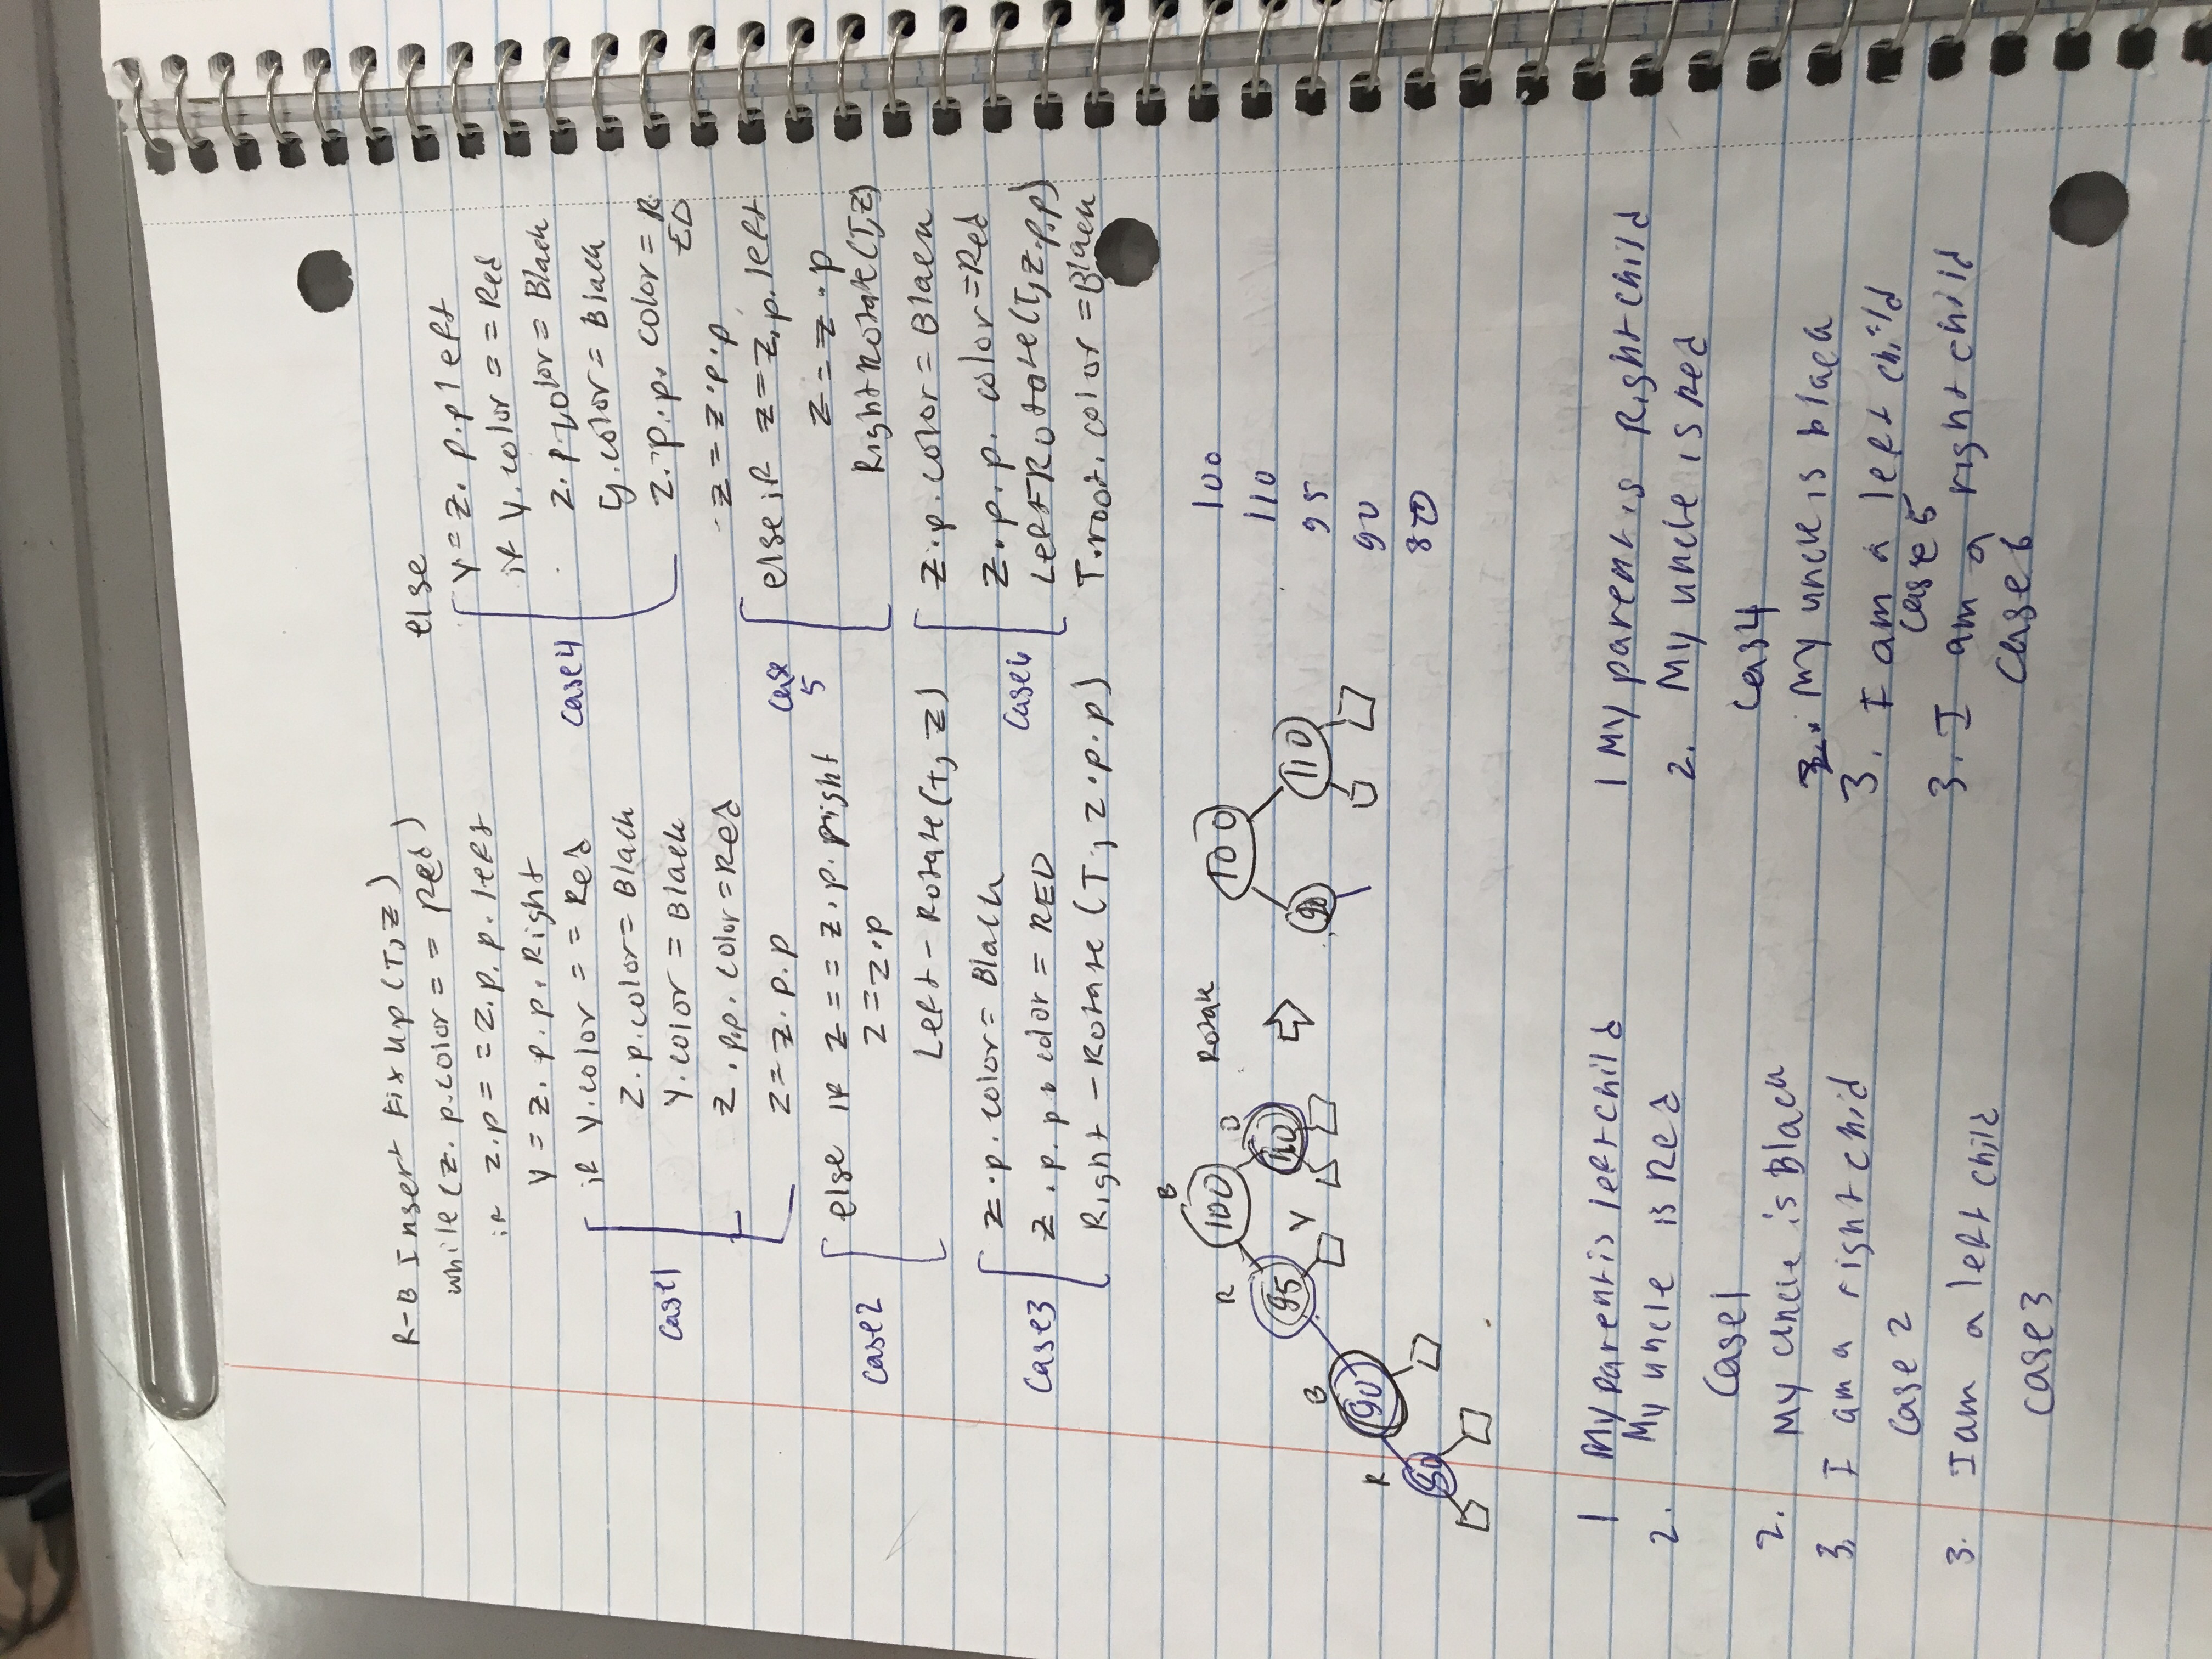 R-B Insert Fix Up (T, Z)
while (z. p.color = = Red)
if z.p = = z.p. p. left
Y = z. p. p. Right
case1
if Y.color = = Red
z.p.color = Black
Y.color = Black
z .p.p. color = Red
z = z. p. p
case2
else if z = = z. p. right
z = z.p
Left - Rotate (T, z)
case3
z .p. color = Black
z . p. p. color = RED
Right - Rotate (T, z.p.p)
else
Y = z. p.p left
case4
if Y.color = = Red
z. p.color = Black
y.color = Black
z. p.p. color = R
ED
z = z.p.p
case
5
else if z = z.p. left
z = z . p
Right Rotate (T, z)
case6
z.p. color = Black
z. p. p. color = Red
Left Rotate (T, z.p.p)
T.root. color = Black
B
100
R
95
110
Y
B
90
R
80
Rotate
100
90
110
100
110
95
90
80
1 My parent is left child
2. My uncle is Red
Case1
2. My uncle is Black
3. I am a right chid
case 2
3. I am a left child
case3
1 My parent is Right child
2. My uncle is red
cas4
2. My uncle is black
3. I am a left child
case 5
3. I am a right child
case6